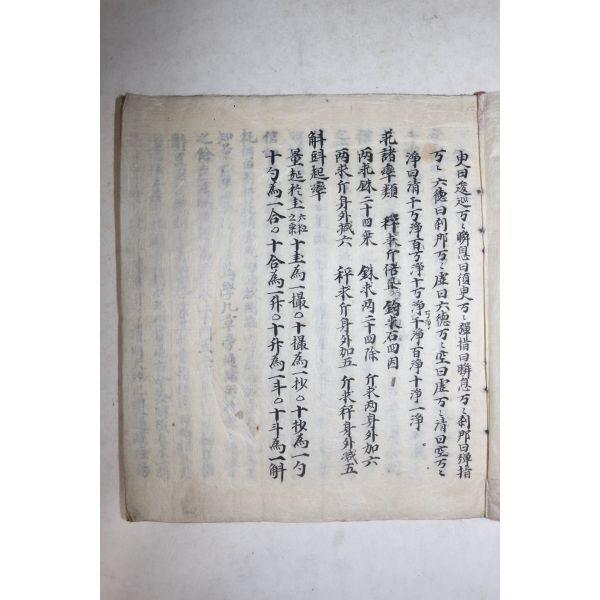 臾曰逡巡万〻瞬息曰須臾万〻彈指曰瞬息万〻刹那曰彈指
万〻六德曰刹那万〻虛曰六德万〻空曰虛万〻清曰空万〻
淨曰清千万淨百万淨十万淨万淨千淨百淨十淨一淨
諸率類 秤求斤倍 鈞求石四因
兩求銖二十四乘 銖求兩二十四除 斤求兩身外加六
兩求斤身外減六 秤求斤身外加五 斤求秤身外減五
斛㪷起率
量起於圭六粒之粟十圭為一撮〇十撮為一抄〇十抄為一勺
十勺為一合〇十合為一升〇十升為一斗〇十斗為一斛